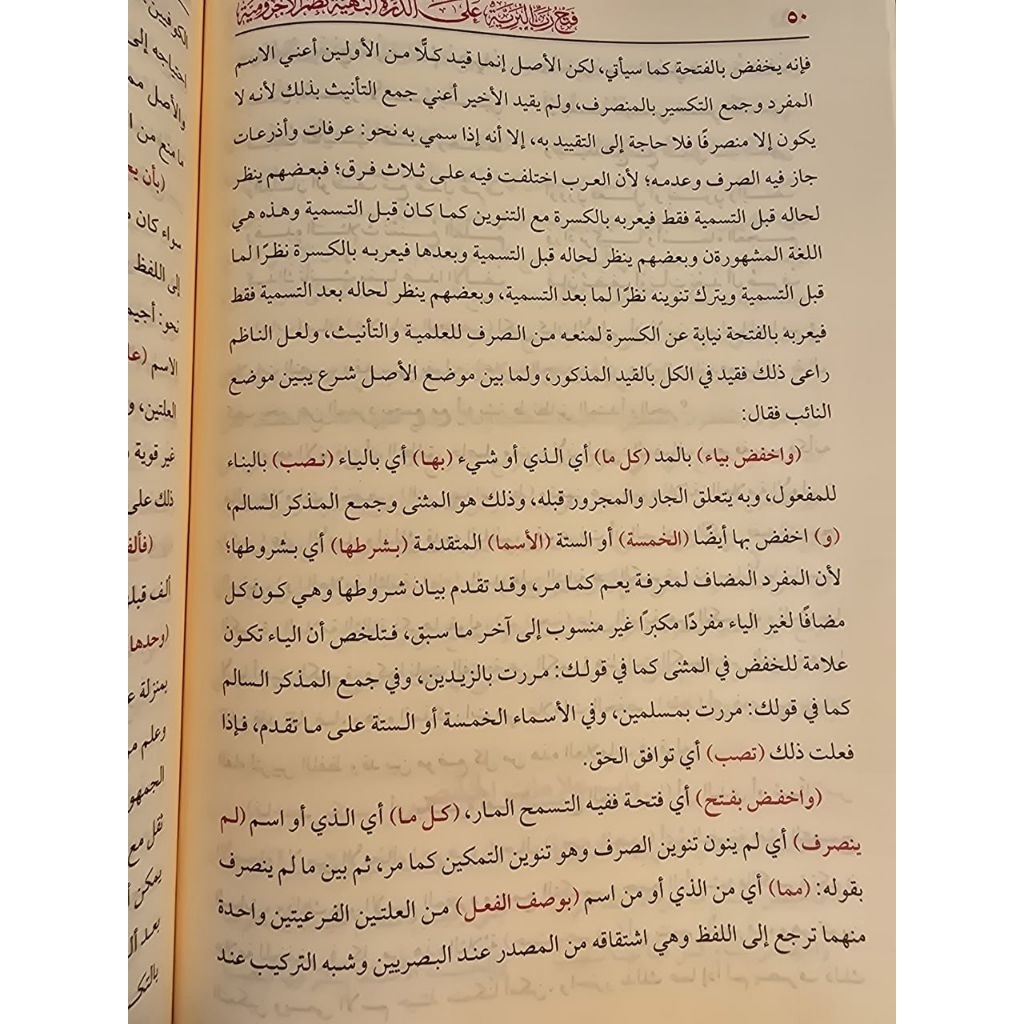 ٥٠
فتح رب البرية على الدرة البهية نظم الآجرومية
فإنه يخفض بالفتحة كما سيأتي، لكن الأصل إنما قيد كلًّا من الأولين أعني الاسم
المفرد وجمع التكسير بالمنصرف، ولم يقيد الأخير أعني جمع التأنيث بذلك لأنه لا
يكون إلا منصرفًا فلا حاجة إلى التقييد به، إلا أنه إذا سمي به نحو: عرفات وأذرعات
جاز فيه الصرف وعدمه؛ لأن العرب اختلفت فيه على ثلاث فرق؛ فبعضهم ينظر
لحاله قبل التسمية فقط فيعربه بالكسرة مع التنوين كما كان قبل التسمية وهذه هي
اللغة المشهورةن وبعضهم ينظر لحاله قبل التسمية وبعدها فيعربه بالكسرة نظرًا لما
قبل التسمية ويترك تنوينه نظرًا لما بعد التسمية، وبعضهم ينظر لحاله بعد التسمية فقط
فيعربه بالفتحة نيابة عن الكسرة لمنعه من الصرف للعلمية والتأنيث، ولعل الناظم
راعى ذلك فقيد في الكل بالقيد المذكور، ولما بين موضع الأصل شرع يبين موضع
النائب فقال:
(واخفض بياء) بالمد (كل ما) أي الذي أو شيء (بها) أي بالياء (نصب) بالبناء
للمفعول، وبه يتعلق الجار والمجرور قبله، وذلك هو المثنى وجمع المذكر السالم،
(و) اخفض بها أيضًا (الخمسة) أو الستة (الأسما) المتقدمة (بشرطها) أي بشروطها؛
لأن المفرد المضاف لمعرفة يعم كما مر، وقد تقدم بيان شروطها وهي كون كل
مضافًا لغير الياء مفردًا مكبرًا غير منسوب إلى آخر ما سبق، فتلخص أن الياء تكون
علامة للخفض في المثنى كما في قولك: مررت بالزيدين، وفي جمع المذكر السالم
كما في قولك: مررت بمسلمين، وفي الأسماء الخمسة أو الستة على ما تقدم، فإذا
فعلت ذلك (تصب) أي توافق الحق.
(واخفض بفتح) أي فتحة ففيه التسمح المار، (كل ما) أي الذي أو اسم (لم
ينصرف) أي لم ينون تنوين الصرف وهو تنوين التمكين كما مر، ثم بين ما لم ينصرف
بقوله: (مما) أي من الذي أو من اسم (بوصف الفعل) من العلتين الفرعيتين واحدة
منهما ترجع إلى اللفظ وهي اشتقاقه من المصدر عند البصريين وشبه التركيب عند